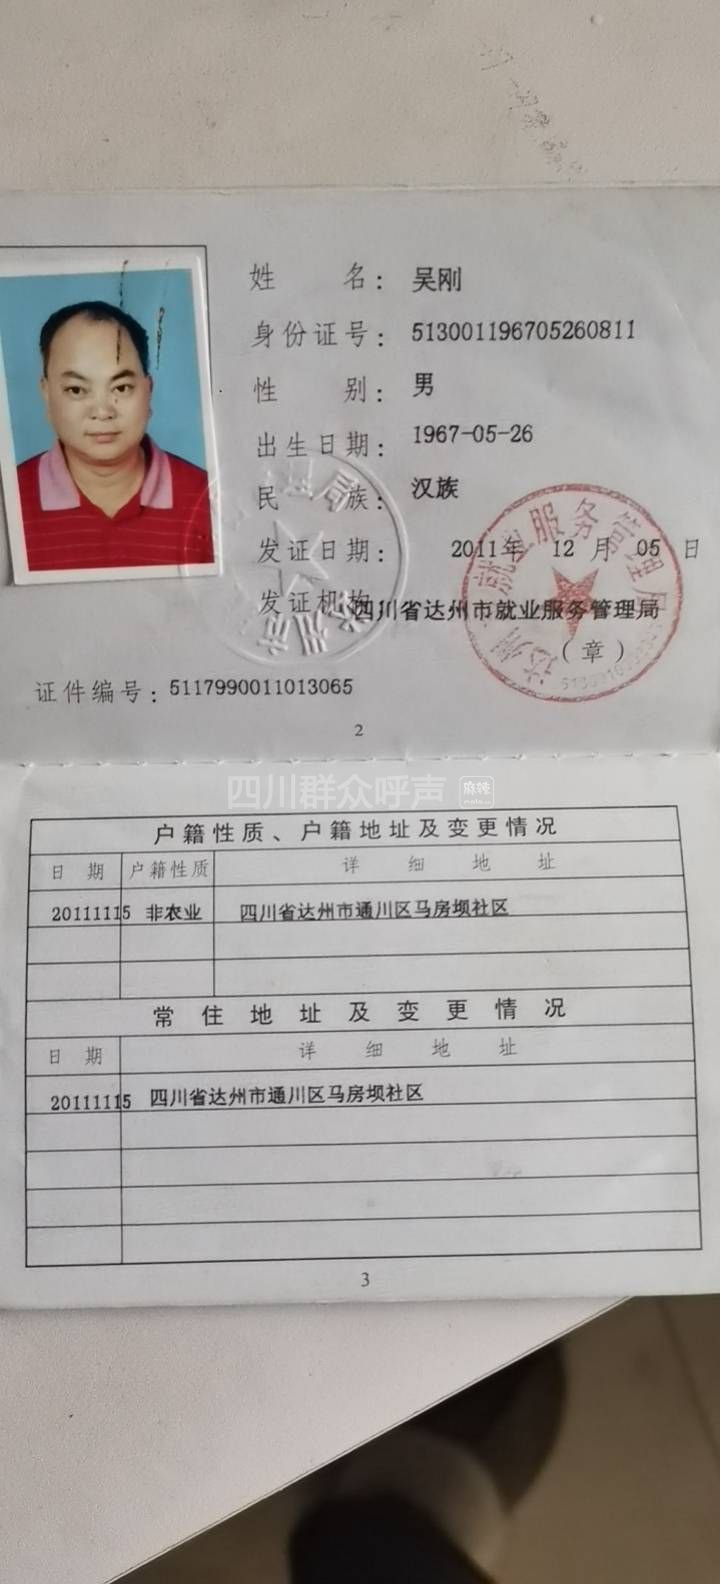 姓 名： 吴刚
身份证号： 513001196705260811
性 别： 男
出生日期： 1967-05-26
民 族： 汉族
发证日期： 2011年 12 月 05 日
发证机构： 四川省达州市就业服务管理局
（章）
证件编号： 5117990011013065
2
四川群众呼声 麻辣
户籍性质、户籍地址及变更情况
日 期 户籍性质 详 细 地 址
20111115 非农业 四川省达州市通川区马房坝社区
常 住 地 址 及 变 更 情 况
日 期 详 细 地 址
20111115 四川省达州市通川区马房坝社区
3